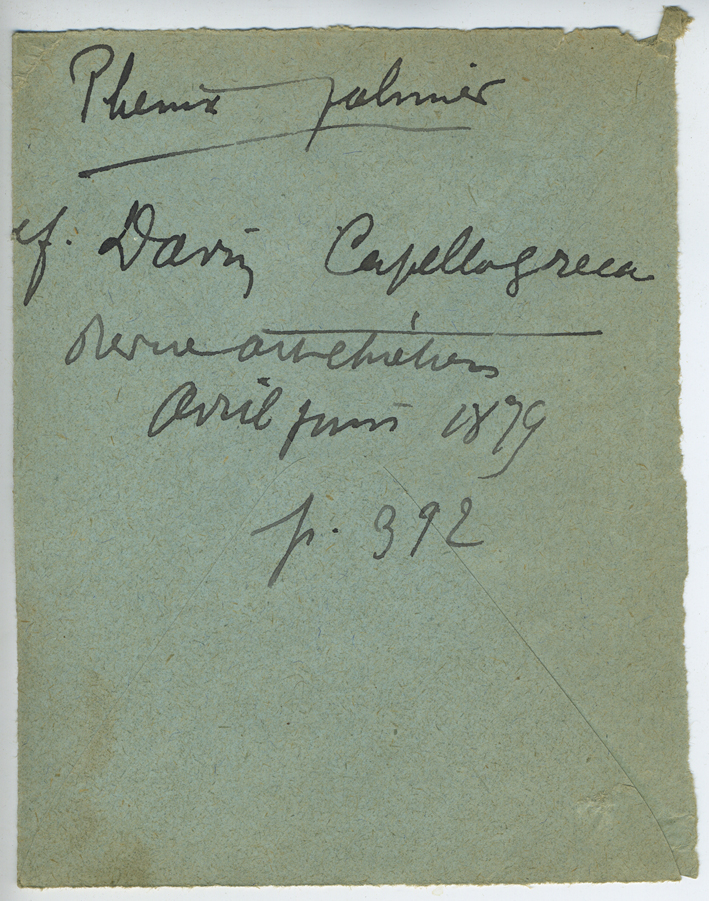 Phenix palmier
cf. Davin Capella greca
Revue art chrétien
Avril juin 1879
p. 392